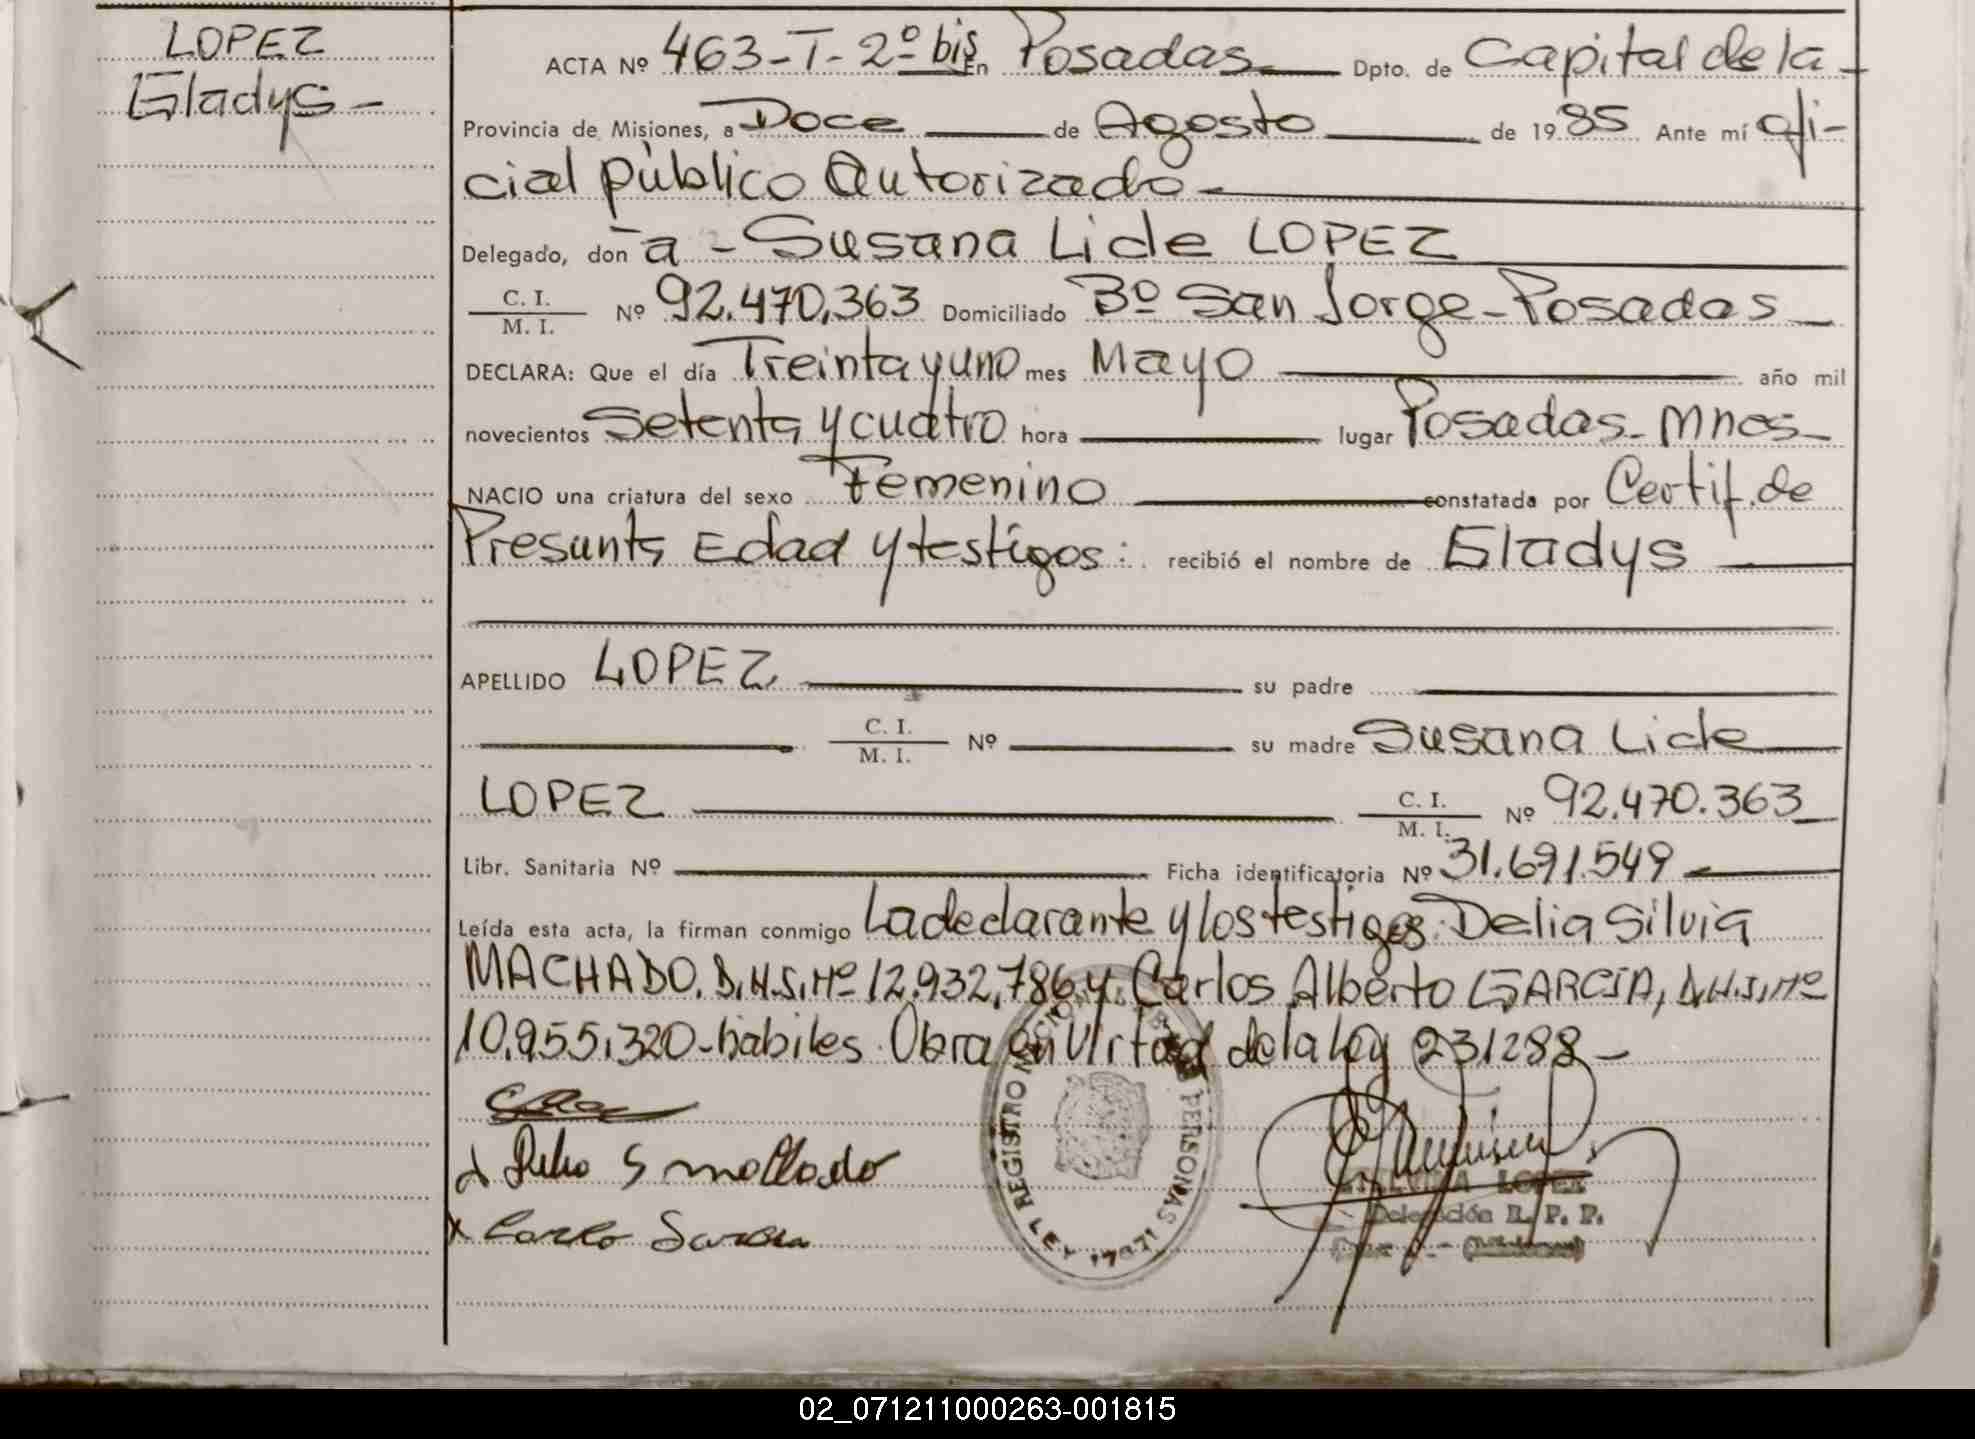 LOPEZ
Gladys -
ACTA Nº 463-T-2º bis En Posadas Dpto. de Capital de la
Provincia de Misiones, a Doce de Agosto de 1985 Ante mí ofi-
cial público Autorizado
Delegado, don ̃a - Susana Lide LOPEZ
C. I.
M. I. Nº 92.470.363 Domiciliado Bº San Jorge - Posadas
DECLARA: Que el día Treinta y uno mes Mayo año mil
novecientos Setenta y cuatro hora lugar Posadas - Mnes
NACIO una criatura del sexo Femenino constatada por Certif. de
Presunta Edad y testigos: recibió el nombre de Gladys
APELLIDO LOPEZ su padre
C. I.
M. I. Nº su madre Susana Lide
LOPEZ C. I.
M. I. Nº 92.470.363
Libr. Sanitaria Nº Ficha identificatoria Nº 31.691.549
Leída esta acta, la firman conmigo La declarante y los testigos: Delia Silvia
MACHADO, D.N.I. Nº 12.932.786 y Carlos Alberto GARCIA, D.N.I. Nº
10.955.320 - hábiles. Obra en Virtud de la Ley 23128
REGISTRO NACIONAL DE LAS PERSONAS LEY 17671
LOPEZ
Delegación R. P. P.
02_071211000263-001815